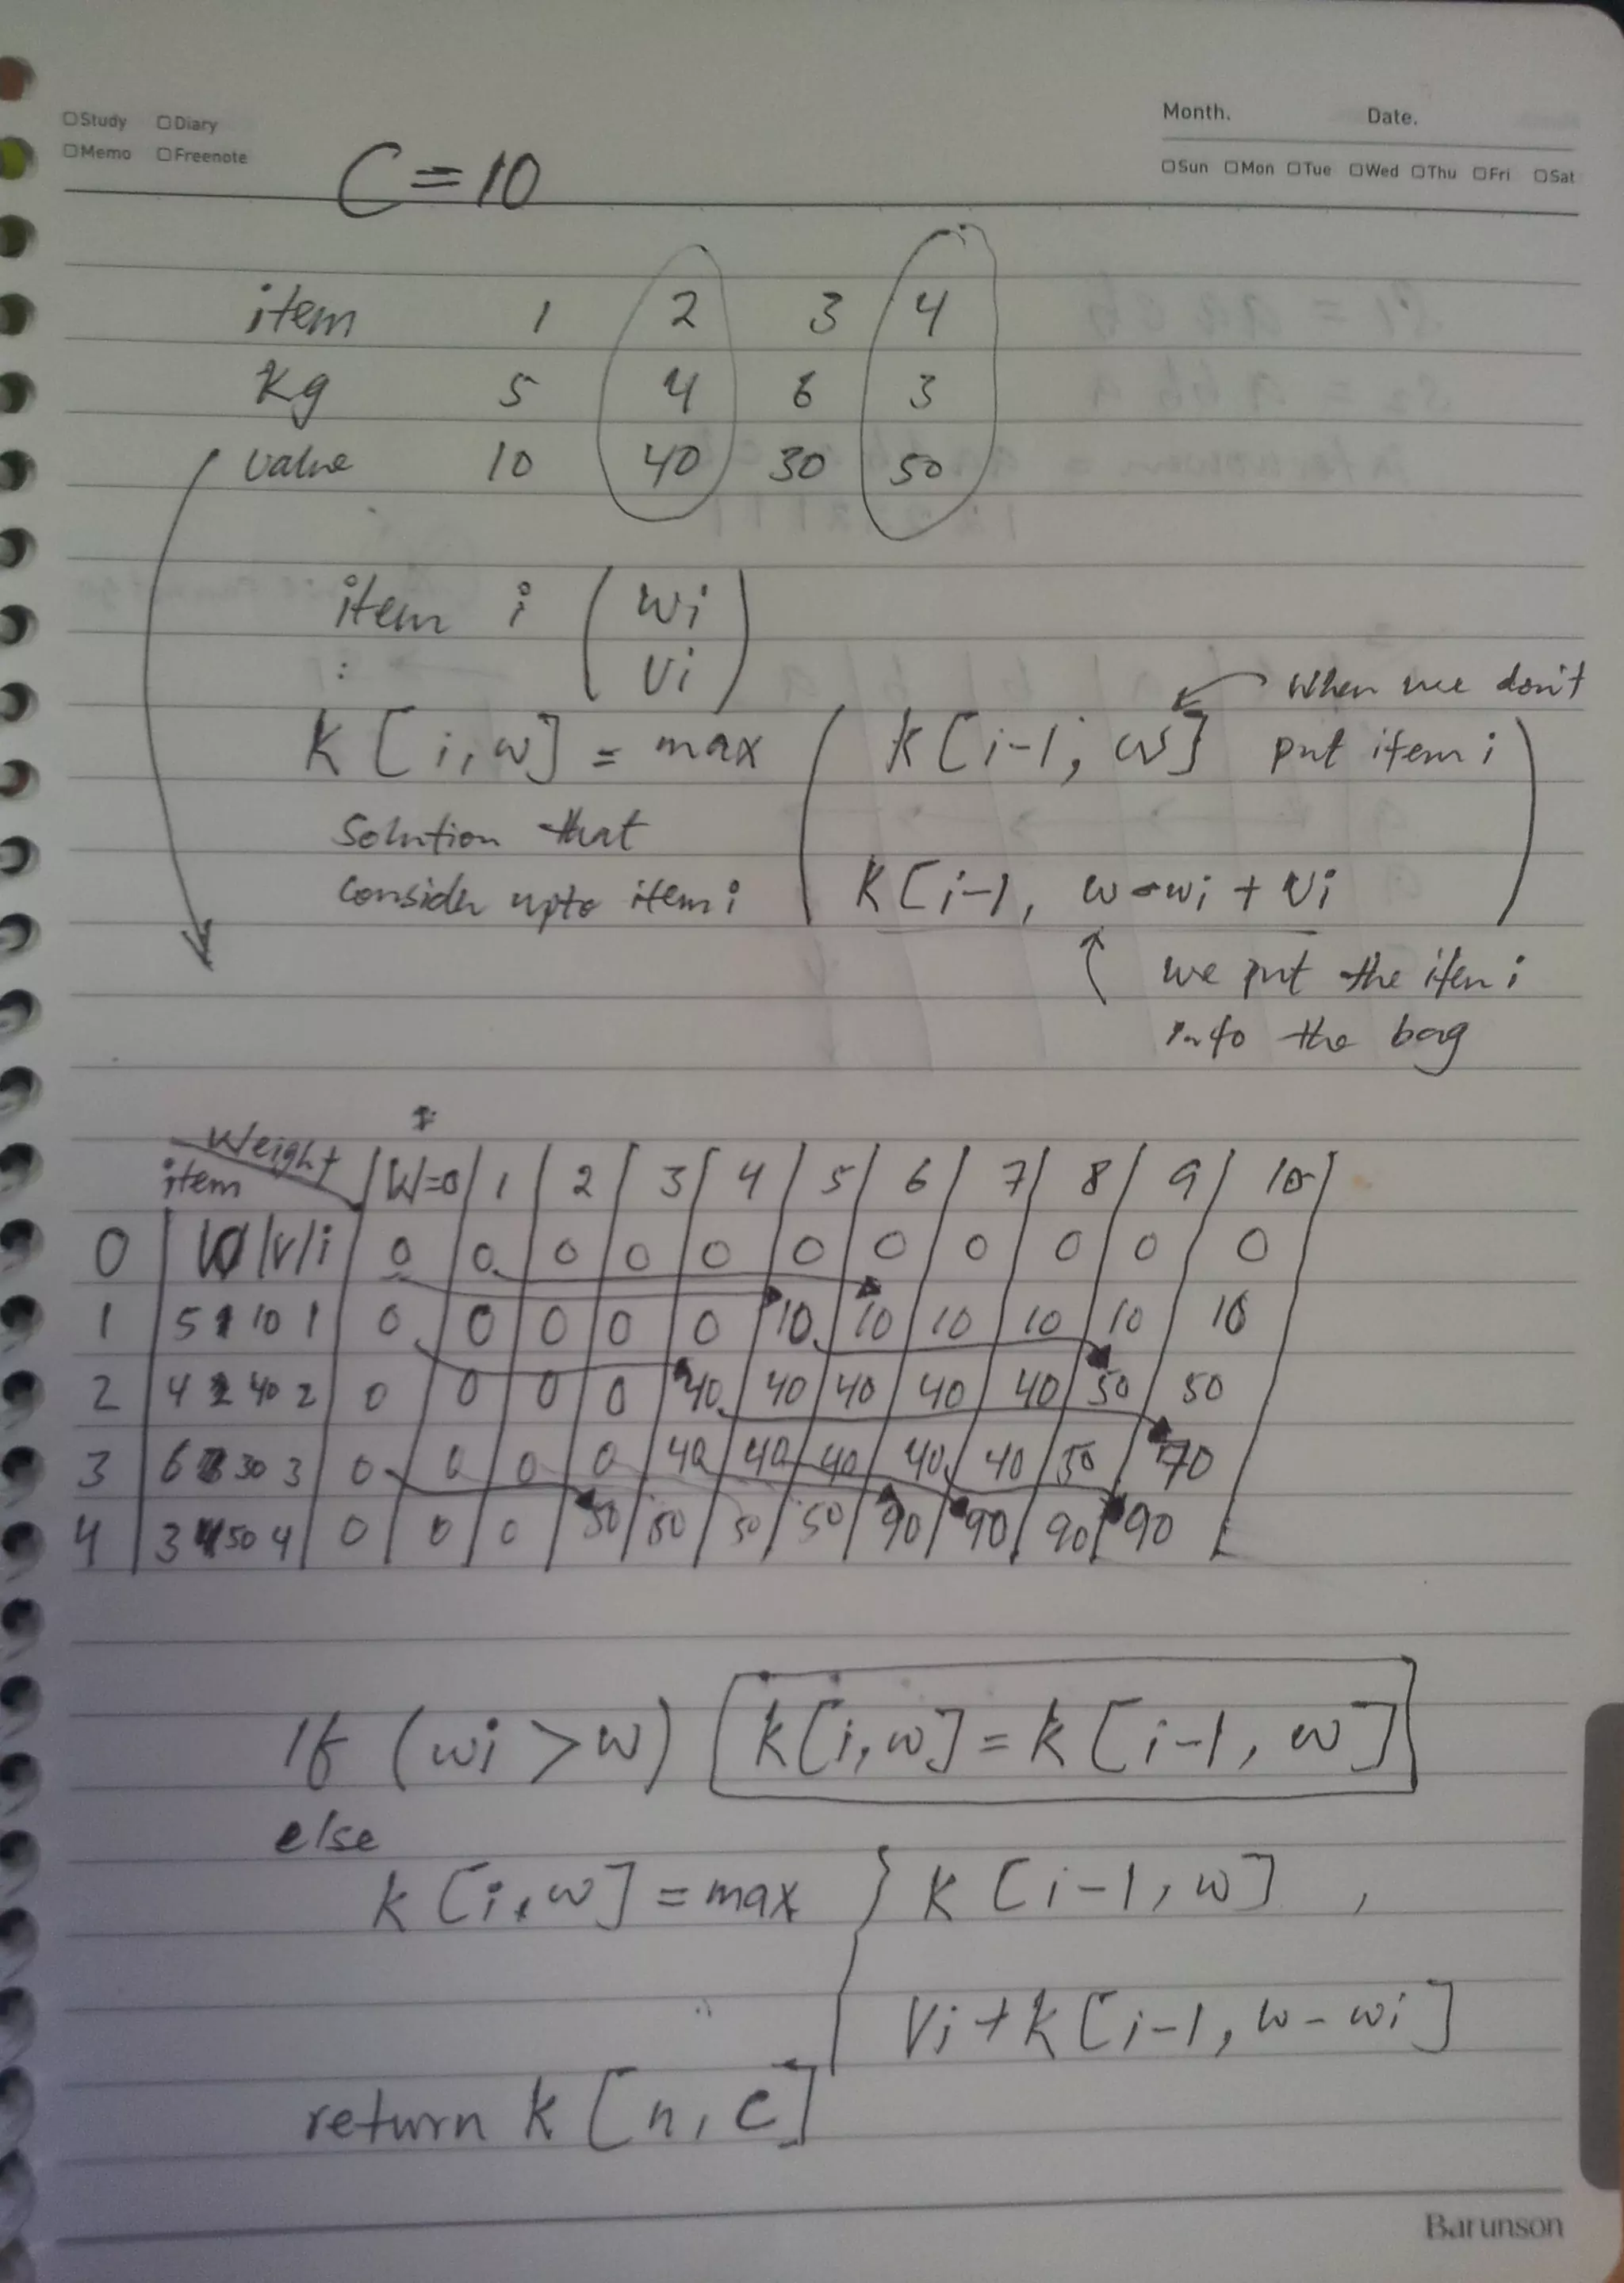 ☐Study ☐Diary
☐Memo ☐Freenote
Month. Date.
☐Sun ☐Mon ☐Tue ☐Wed ☐Thu ☐Fri ☐Sat
C=10
item 1 2 3 4
Kg 5 4 6 3
value 10 40 30 50
item i ( wi
: vi )
when we don't
K[i,w] = max ( K[i-1, w] put item i
Solution that
consider upto item i K[i-1, w-wi + vi )
we put the item i
into the bag
Weight
item W=0 1 2 3 4 5 6 7 8 9 10
0 | W | v | i 0 0 0 0 0 0 0 0 0 0 0
1 5 10 1 0 0 0 0 0 10 10 10 10 10 10
2 4 40 2 0 0 0 0 40 40 40 40 40 50 50
3 6 30 3 0 0 0 0 40 40 40 40 40 50 70
4 3 50 4 0 0 0 50 50 50 50 90 90 90 90
If (wi > w) k[i,w] = k[i-1, w]
else
k[i,w] = max { k[i-1, w] ,
Vi + k[i-1, w-wi]
return k[n, c]
Barunson